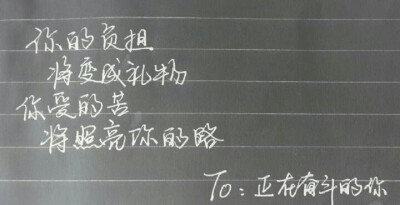 你的负担
将变成礼物
你受的苦
将照亮你的路
To：正在奋斗的你